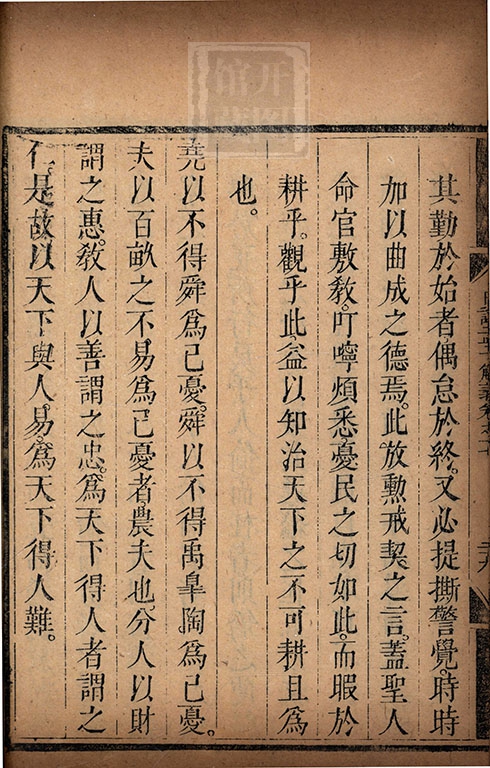 其勤於始者偶怠於終又必提撕警覺時時
加以曲成之德焉此放勳戒契之言蓋聖人
命官敷教叮嚀煩悉憂民之切如此而暇於
耕乎觀乎此益以知治天下之不可耕且爲
也。
堯以不得舜爲己憂舜以不得禹皐陶爲己憂。
夫以百畝之不易爲己憂者農夫也分人以財
謂之惠教人以善謂之忠爲天下得人者謂之
仁是故以天下與人易爲天下得人難。